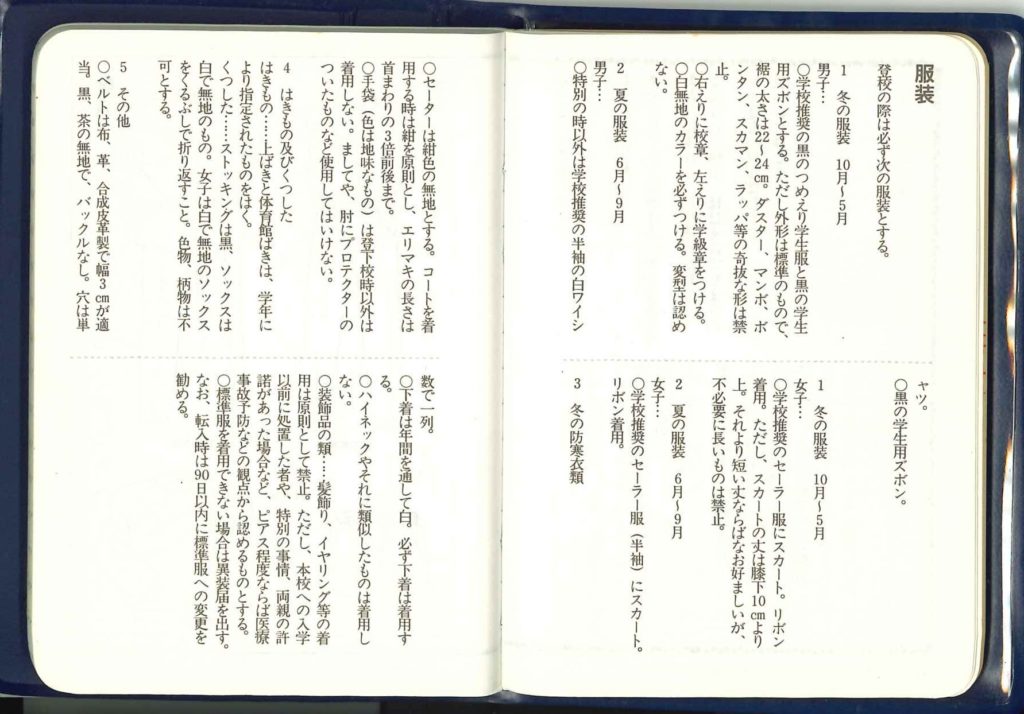 服装
登校の際は必ず次の服装とする。
1 冬の服装 10月～5月
男子…
○学校推奨の黒のつめえり学生服と黒の学生
用ズボンとする。ただし外形は標準のもので、
裾の太さは22～24cm。ダスター、マンボ、ボ
ンタン、スカマン、ラッパ等の奇抜な形は禁
止。
○右えりに校章、左えりに学級章をつける。
○白無地のカラーを必ずつける。変型は認め
ない。
2 夏の服装 6月～9月
男子…
○特別の時以外は学校推奨の半袖の白ワイシ
ャツ。
○黒の学生用ズボン。
1 冬の服装 10月～5月
女子…
○学校推奨のセーラー服にスカート。リボン
着用。ただし、スカートの丈は膝下10cmより
上。それより短い丈ならばなお好ましいが、
不必要に長いものは禁止。
2 夏の服装 6月～9月
女子…
○学校推奨のセーラー服（半袖）にスカート。
リボン着用。
3 冬の防寒衣類
○セーターは紺色の無地とする。コートを着
用する時は紺を原則とし、エリマキの長さは
首まわりの3倍前後まで。
○手袋（色は地味なもの）は登下校時以外は
着用しない。ましてや、肘にプロテクターの
ついたものなど使用してはいけない。
4 はきもの及びくつした
はきもの……上ばきと体育館ばきは、学年に
より指定されたものをはく。
くつした……ストッキングは黒、ソックスは
白で無地のもの。女子は白で無地のソックス
をくるぶしで折り返すこと。色物、柄物は不
可とする。
5 その他
○ベルトは布、革、合成皮革製で幅3cmが適
当。黒、茶の無地で、バックルなし。穴は単
数で一列。
○下着は年間を通して白。必ず下着は着用す
る。
○ハイネックやそれに類似したものは着用し
ない。
○装飾品の類……髪飾り、イヤリング等の着
用は原則として禁止。ただし、本校への入学
以前に処置した者や、特別の事情、両親の許
諾があった場合など、ピアス程度ならば医療
事故予防などの観点から認めるものとする。
○標準服を着用できない場合は異装届を出す。
なお、転入時は90日以内に標準服への変更を
勧める。